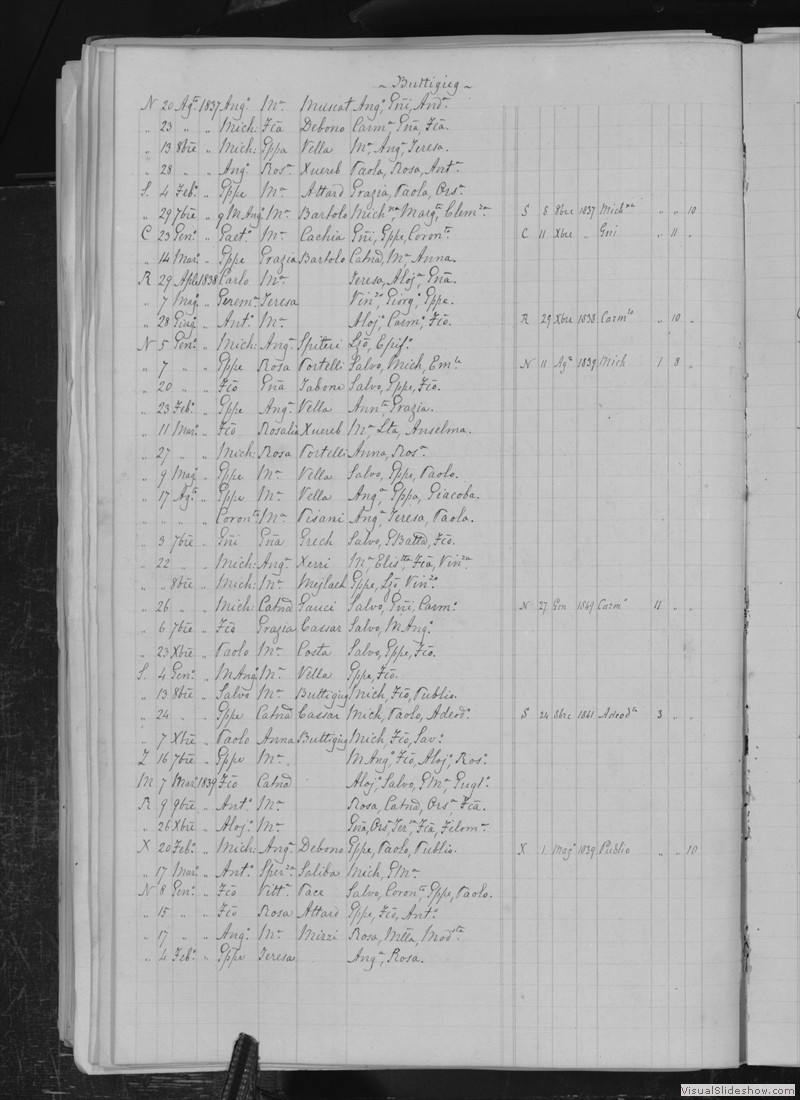 ~ Buttigieg ~
N 20 Agto 1837 Ango Ma Muscat Ango, Gñi, Anda.
„ 23 „ „ Mich: Fcã Debono Carma, Gña, Fcã.
„ 13 8bre „ Mich: Gppa Vella Ma, Anga, Teresa.
„ 28 „ „ Ango Rosa Xuereb Paola, Rosa, Anta.
S. 4 Febo „ Gppe Ma Attard Grazia, Paola, Orsa.
„ 29 7bre „ G M Ango Ma Bartolo Michna, Margta, Clemza. S 8 8bre 1837 Michna „ „ 10
C 23 Geno „ Gaeto Ma Cachia Gñi, Gppe, Coronta. C 11 Xbre „ Gñi „ 11 „
„ 14 Mar: „ Gppe Grazia Bartolo Catnã, Ma Anna.
R 29 Aple 1838 Carlo Ma Teresa, Aloja, Gña.
„ 7 Mago „ Geremo Teresa Vinzo, Giorgo, Gppe.
„ 28 Giugo „ Anto Ma Alojo, Carmo, Fcõ. R 29 Xbre 1838 Carmlo „ 10 „
N 5 Geno „ Mich: Anga Spiteri Ljõ, Epifo.
„ 7 „ „ Gppe Rosa Portelli Salvo, Mich, Emla. N 11 Agto 1839 Mich 1 8 „
„ 20 „ „ Fcõ Gña Tabone Salvo, Gppe, Fcõ.
„ 23 Febo „ Gppe Anga Vella Annta, Grazia.
„ 11 Maro „ Fcõ Rosalia Xuereb Ma, Lta, Anselma.
„ 27 „ „ Mich: Rosa Portelli Anna, Rosa.
„ 9 Mago „ Gppe Ma Vella Salvo, Gppe, Paolo.
„ 17 Agto „ Gppe Ma Vella Anga, Gppa, Giacoba.
„ „ „ „ Coronto Ma Pisani Anga, Teresa, Paola.
„ 3 7bre „ Gñi Gña Grech Salvo, GBatta, Fcõ.
„ 22 „ „ Mich: Anga Xerri Ma, Elistta, Fcã, Vinza.
„ „ 8bre „ Mich: Ma Mejlach Gppe, Ljõ, Vinzo.
„ 26 „ „ Mich: Catnã Gauci Salvo, Gñi, Carmo. N 27 Gen 1849 Carmo 11 „ „
„ 6 7bre „ Fcõ Grazia Cassar Salvo, M Ango.
„ 23 Xbre „ Paolo Ma Costa Salvo, Gppe, Fcõ.
S. 4 Geno „ M Ango Ma Vella Gppe, Fcõ.
„ 13 8bre „ Salvo Ma Buttigieg Mich, Fcõ, Publio.
„ 24 „ „ Gppe Catnã Cassar Mich, Paolo, Adeodo. S 24 8bre 1841 Adeodto 3 „ „
„ 7 Xbre „ Paolo Anna Buttigieg Mich, Fcõ, Savo.
Z 16 7bre „ Gppe Ma M Ango, Fcõ, Alojo, Roso.
M 7 Maro 1839 Fcõ Catnã Alojo, Salvo, GMa, Guglo.
R 9 9bre „ Anto Ma Rosa, Catnã, Orsa, Fcã.
„ 26 Xbre „ Alojo Ma Gña, Orsa, Tersa, Fcã, Filoma.
X 20 Febo „ Mich: Anga Debono Gppe, Paolo, Publio. X 1 Mago 1839 Publio „ „ 10
„ 17 Maro „ Anto Sperza Saliba Mich, GMa
N 8 Geno „ Fcõ Vitta Pace Salvo, Coronto, Gppe, Paolo.
„ 15 „ „ Fcõ Rosa Attard Gppe, Fcõ, Anto.
„ 17 „ „ Ango Ma Mizzi Rosa, Modsta.
„ 4 Febo „ Gppe Teresa Anga, Rosa.
VisualSlideshow.com